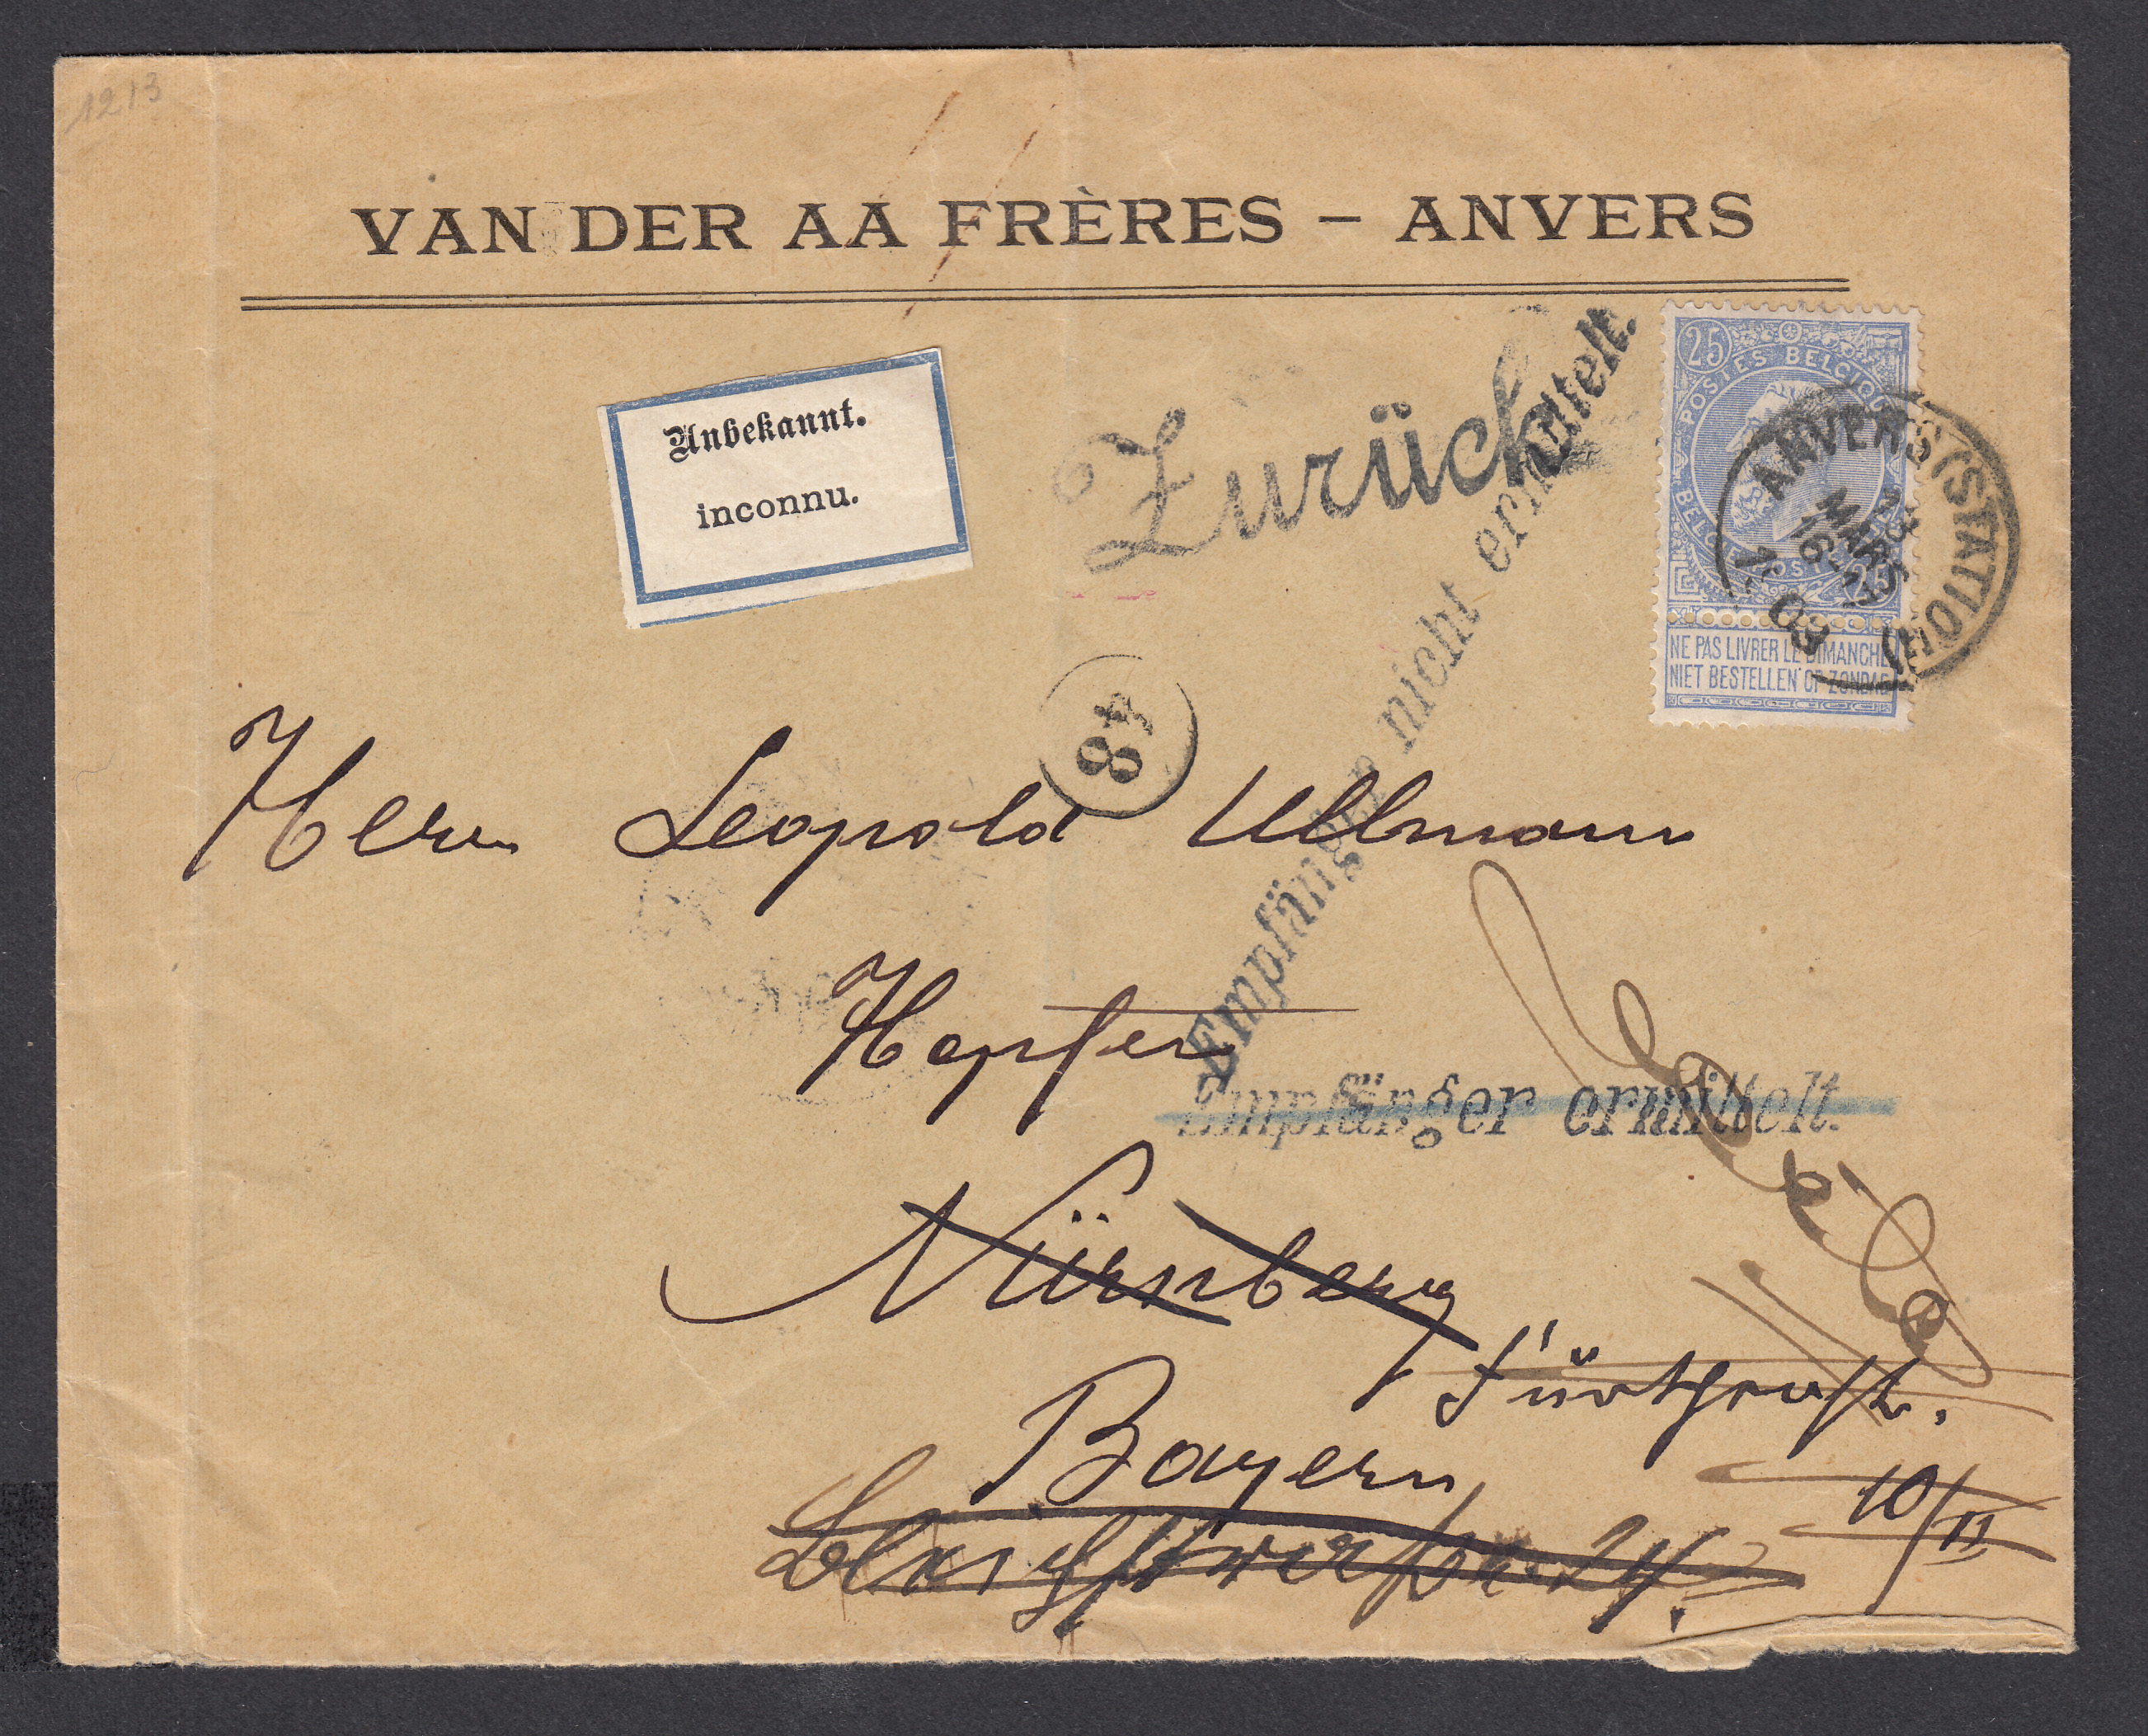 1213
VAN DER AA FRÈRES – ANVERS
Unbekannt.
inconnu.
Zurück
Empfänger nicht ermittelt.
25
POSTES BELGIQUE
BELGIË POSTERIJEN
25
NE PAS LIVRER LE DIMANCHE
NIET BESTELLEN OP ZONDAG
ANVERS (STATION)
MARS
16
48
Herrn Leopold Ullmann
Hopfen
Empfänger ermittelt.
Nürnberg
Bayern
10/II